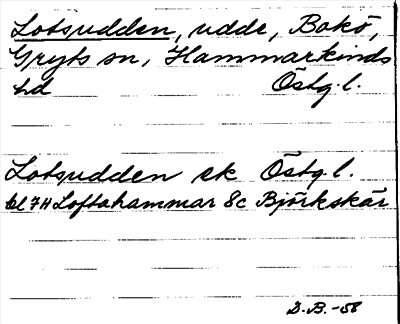 Lotsudden, udde, Bokö,
Gryts sn, Hammarkinds
hd Östg.l.
Lotsudden ek Östg.l.
bl 7H Loftahammar 8c Björkskär
D.B.-58